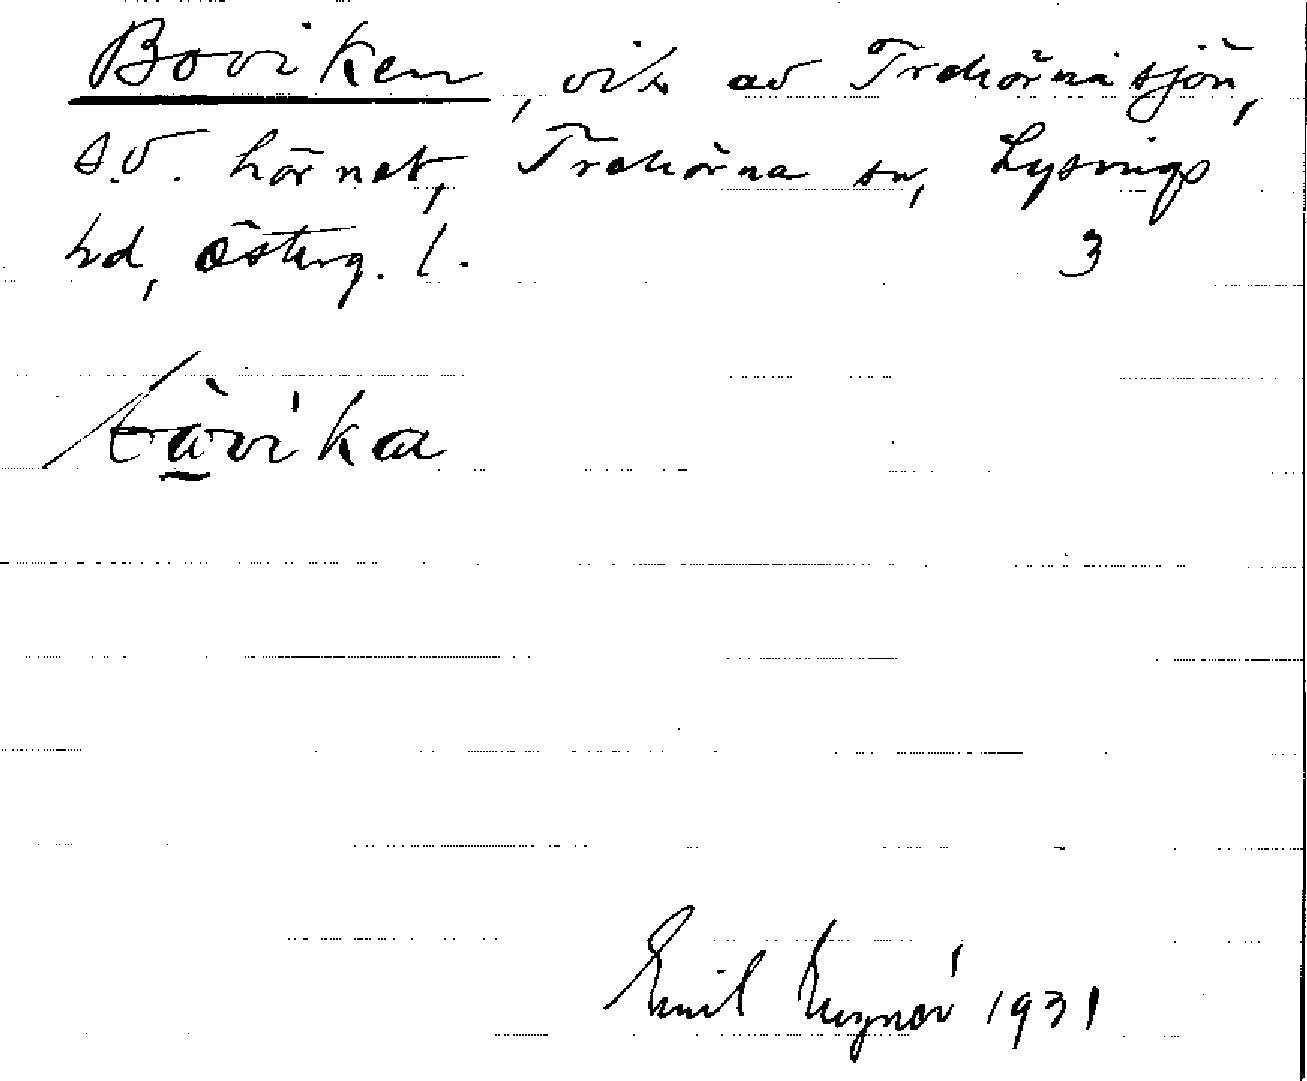 Boviken, vik av Trehörnasjön,
s.v. hörnet, Trehörna sn, Lysings
hd, Österg. l. 3
Emil 1931